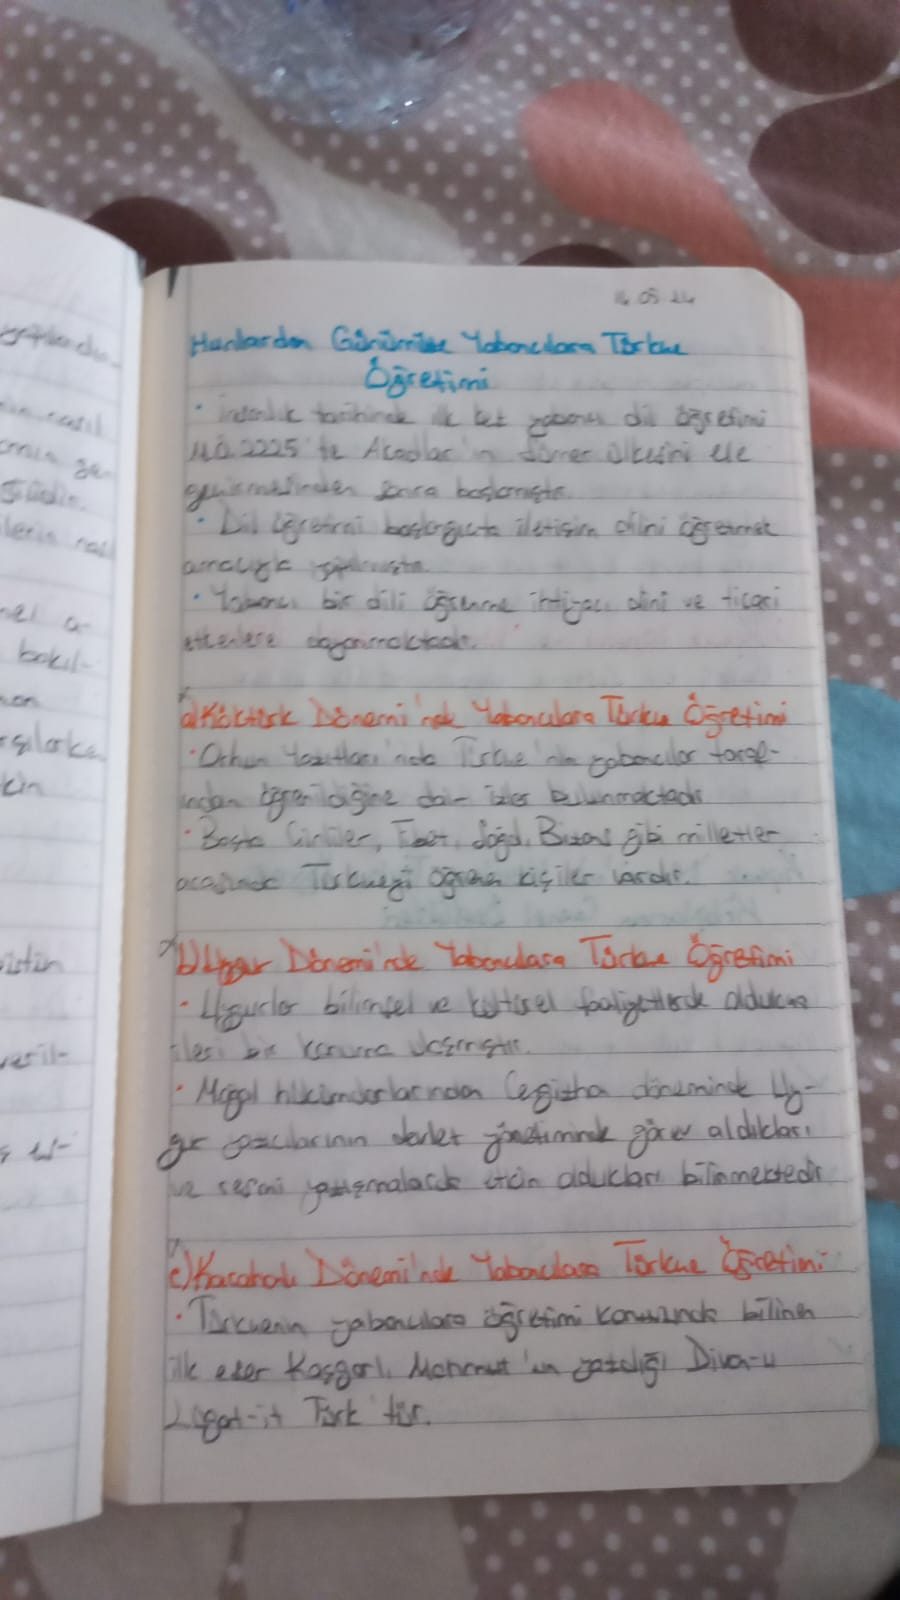 Hunlardan Günümüze Yabancılara Türkçe
Öğretimi
• İnsanlık tarihinde ilk kez yabancı dil öğretimi
M.Ö. 2225'te Akadlar'ın Sümer ülkesini ele
geçirmelerinden sonra başlamıştır.
• Dil öğretimi başlangıçta iletişim dilini öğretmek
amacıyla yapılmıştır.
• Yabancı bir dili öğrenme ihtiyacı dini ve ticari
etkenlere dayanmaktadır.
a) Köktürk Dönemi'nde Yabancılara Türkçe Öğretimi
• Orhun Yazıtları'nda Türkçe'nin yabancılar taraf-
ından öğrenildiğine dair izler bulunmaktadır
• Başta Çinliler, Tibet, Soğd, Bizans gibi milletler
arasında Türkçeyi öğrenen kişiler vardır.
b) Uygur Dönemi'nde Yabancılara Türkçe Öğretimi
• Uygurlar bilimsel ve kültürel faaliyetlerde oldukça
ileri bir konuma ulaşmıştır.
• Moğol hükümdarlarından Cengizhan döneminde Uy-
gur yazıcılarının devlet yönetiminde görev aldıkları
ve resmi yazışmalarda etkin oldukları bilinmektedir
c) Karahanlı Dönemi'nde Yabancılara Türkçe Öğretimi
• Türkçenin yabancılara öğretimi konusunda bilinen
ilk eser Kaşgarlı Mahmut'un yazdığı Divan-ı
Lügat-it Türk'tür.